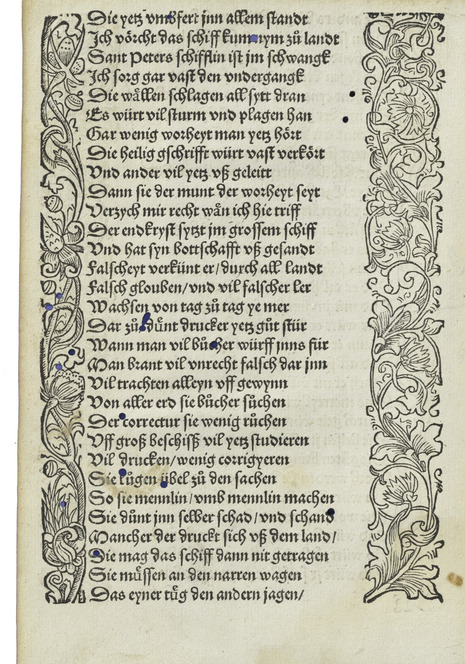 Die yetz vmbfert jnn allem standt
Ich vörcht das schiff kum nym zů landt
Sant Peters schifflin ist jm schwangk
Ich sorg gar vast den vndergangk
Die wällen schlagen all sytt dran
Es würt vil sturm vnd plagen han
Gar wenig worheyt man yetz hört
Die heilig gschrifft würt vast verkört
Vnd ander vil yetz vß geleitt
Dann sie der munt der worheyt seyt
Verzych mir recht wän ich hie triff
Der endkryst sytzt jm grossem schiff
Vnd hat syn bottschafft vß gesandt
Falscheyt verkünt er / durch all landt
Falsch glouben / vnd vil falscher ler
Wachsen von tag zů tag ye mer
Dar zů důnt drucker yetz gůt stür
Wann man vil bůcher würff jnns für
Man brant vil vnrecht falsch dar jnn
Vil trachten alleyn vff gewynn
Von aller erd sie bůcher sůchen
Der correctur sie wenig růchen
Vff groß beschisß vil yetz studieren
Vil drucken / wenig corrigyeren
Sie lůgen übel zů den sachen
So sie mennlin / vmb mennlin machen
Sie důnt jnn selber schad / vnd schand
Mancher der druckt sich vß dem land /
Die mag das schiff dann nit getragen
Sie müssen an den narren wagen
Das eyner tůg den andern jagen /